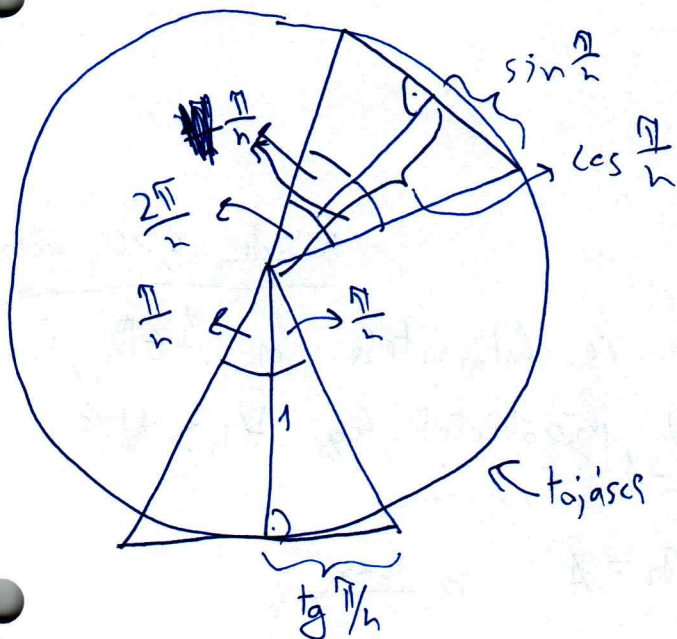 sin π/n
π/n
cos π/n
2π/n
π/n
π/n
1
tojáscs
tg π/n